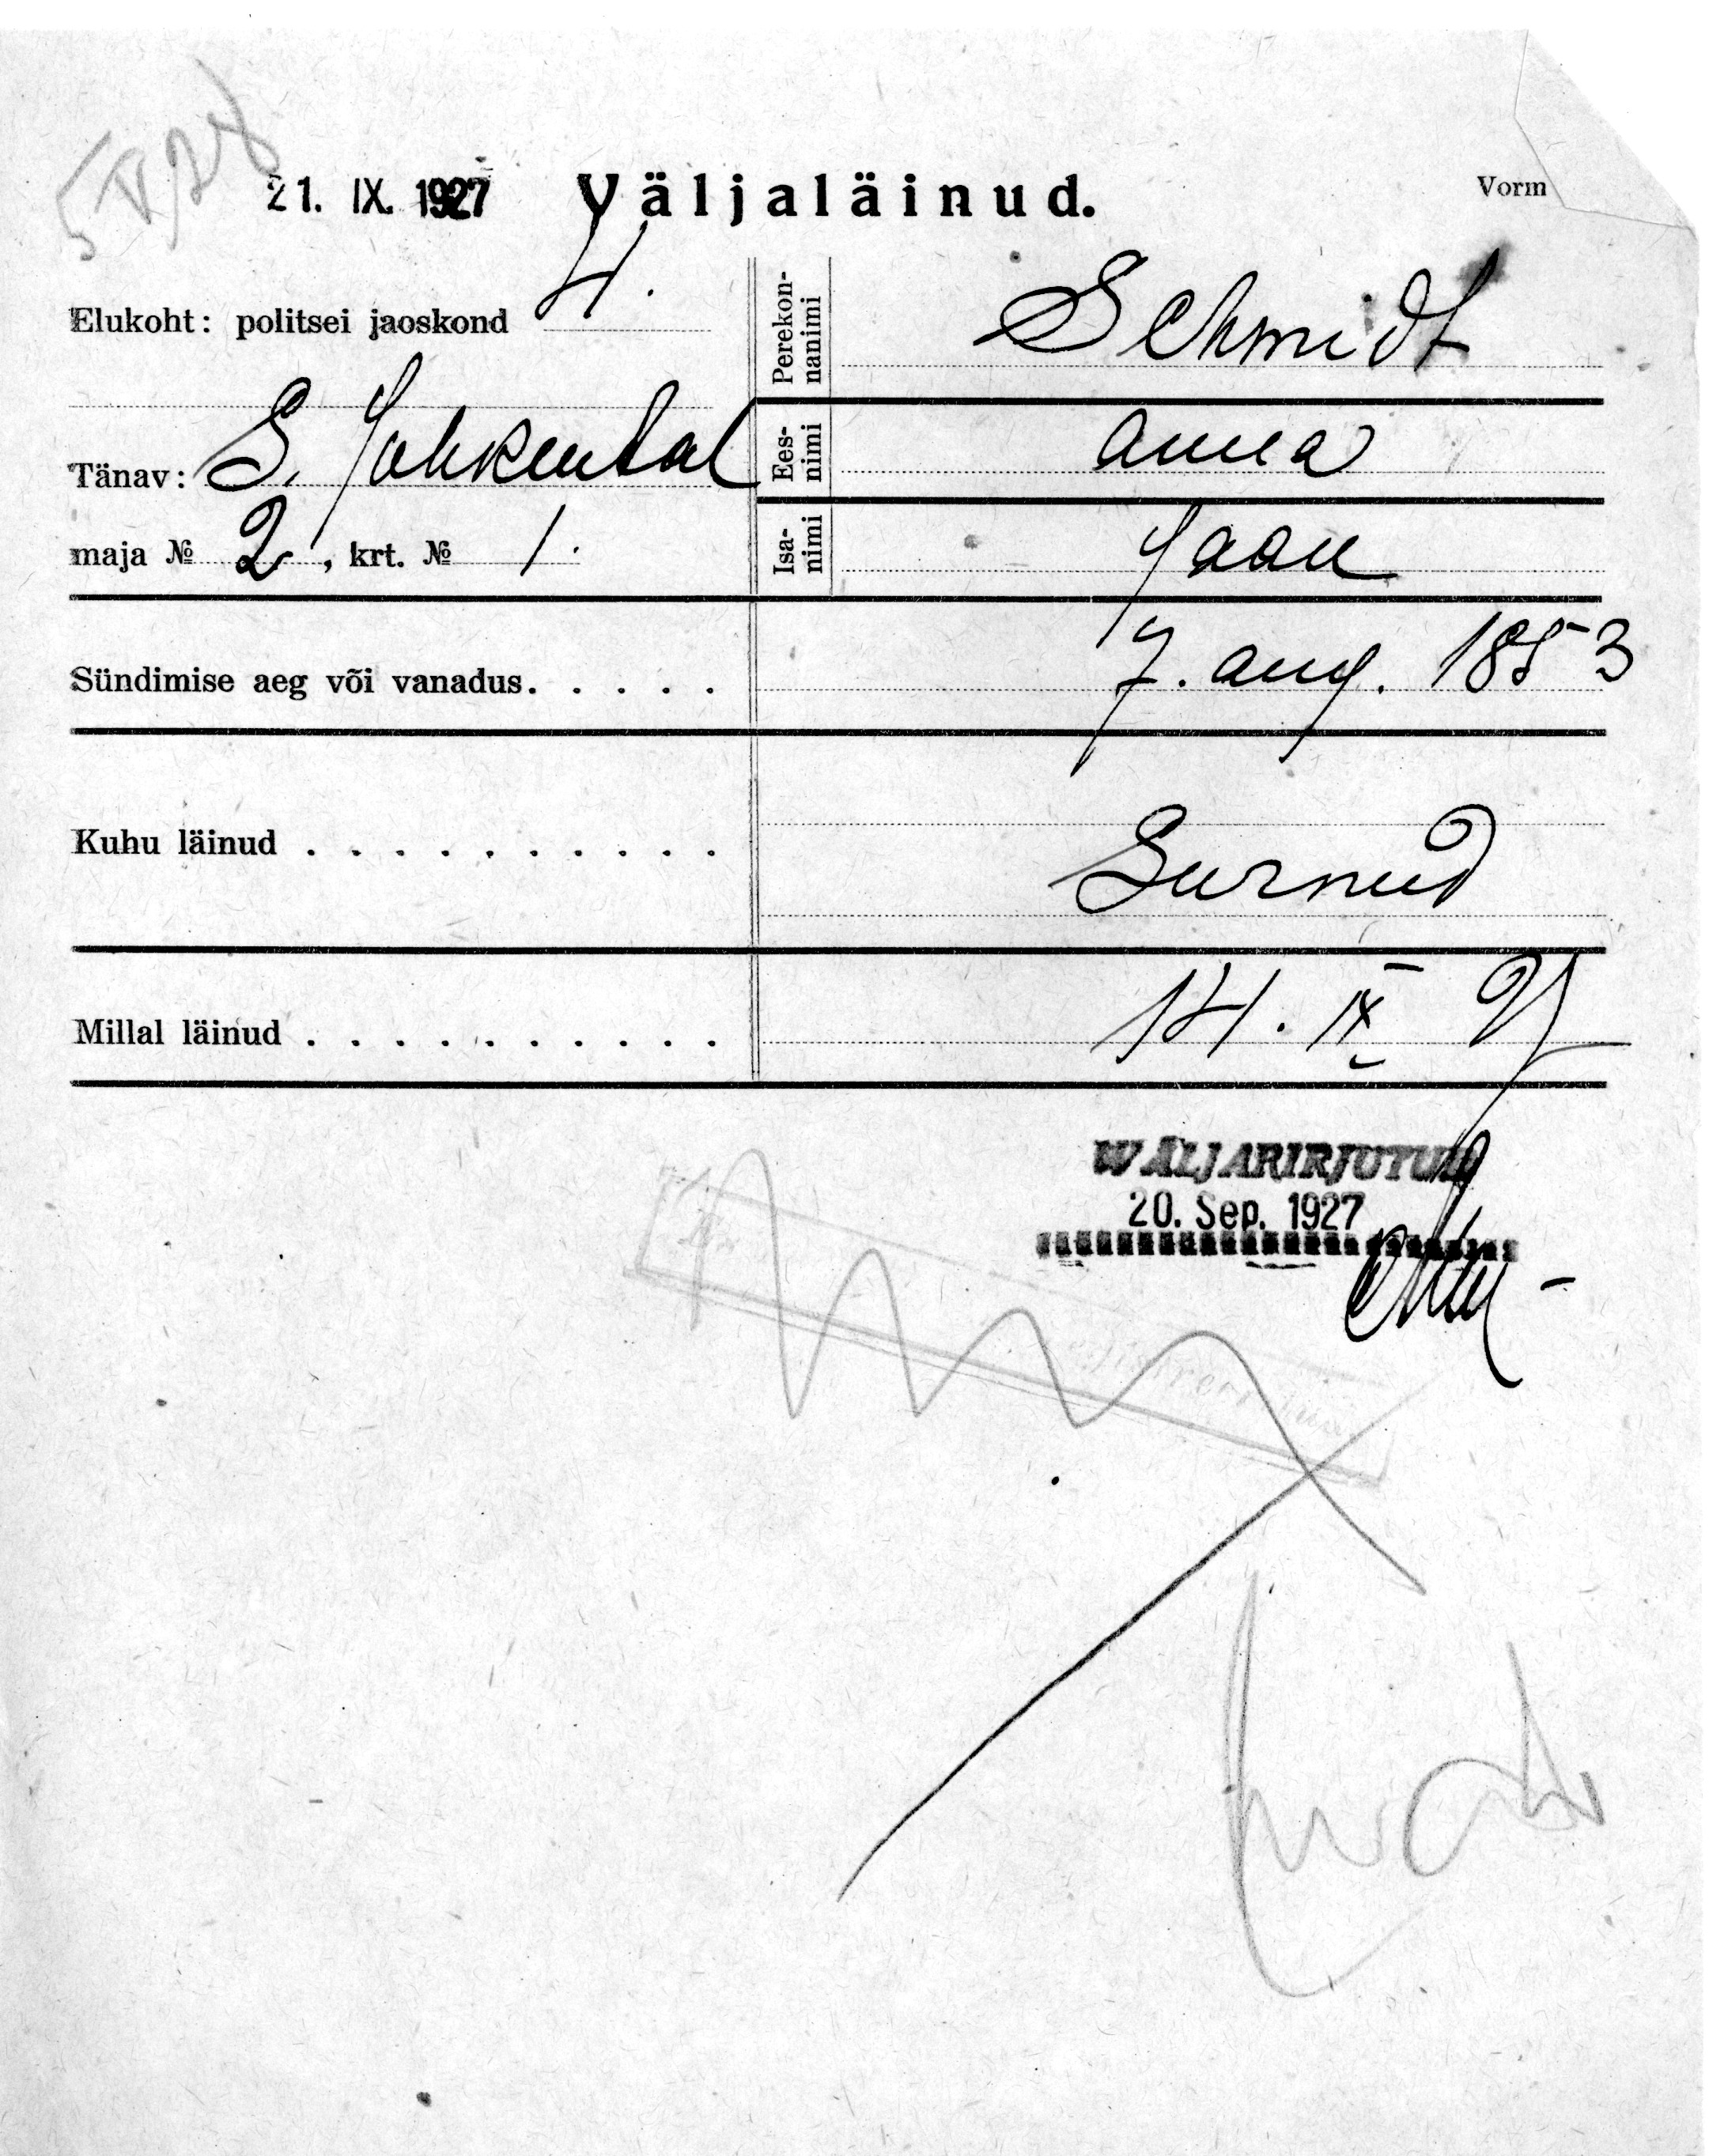 5 V 28
21. IX. 1927 Väljaläinud. Vorm
Elukoht: politsei jaoskond 4.
Perekon-
nanimi Schmidt
Tänav: S. Juhkental
Ees-
nimi Anna
maja № 2, krt. № 1.
Isa-
nimi Jaan
Sündimise aeg või vanadus. . . . . 7. aug. 1853
Kuhu läinud . . . . . . . . . . Surnud
Millal läinud . . . . . . . . . . 14. IX 27
WÄLJAKIRJUTUD
20. Sep. 1927